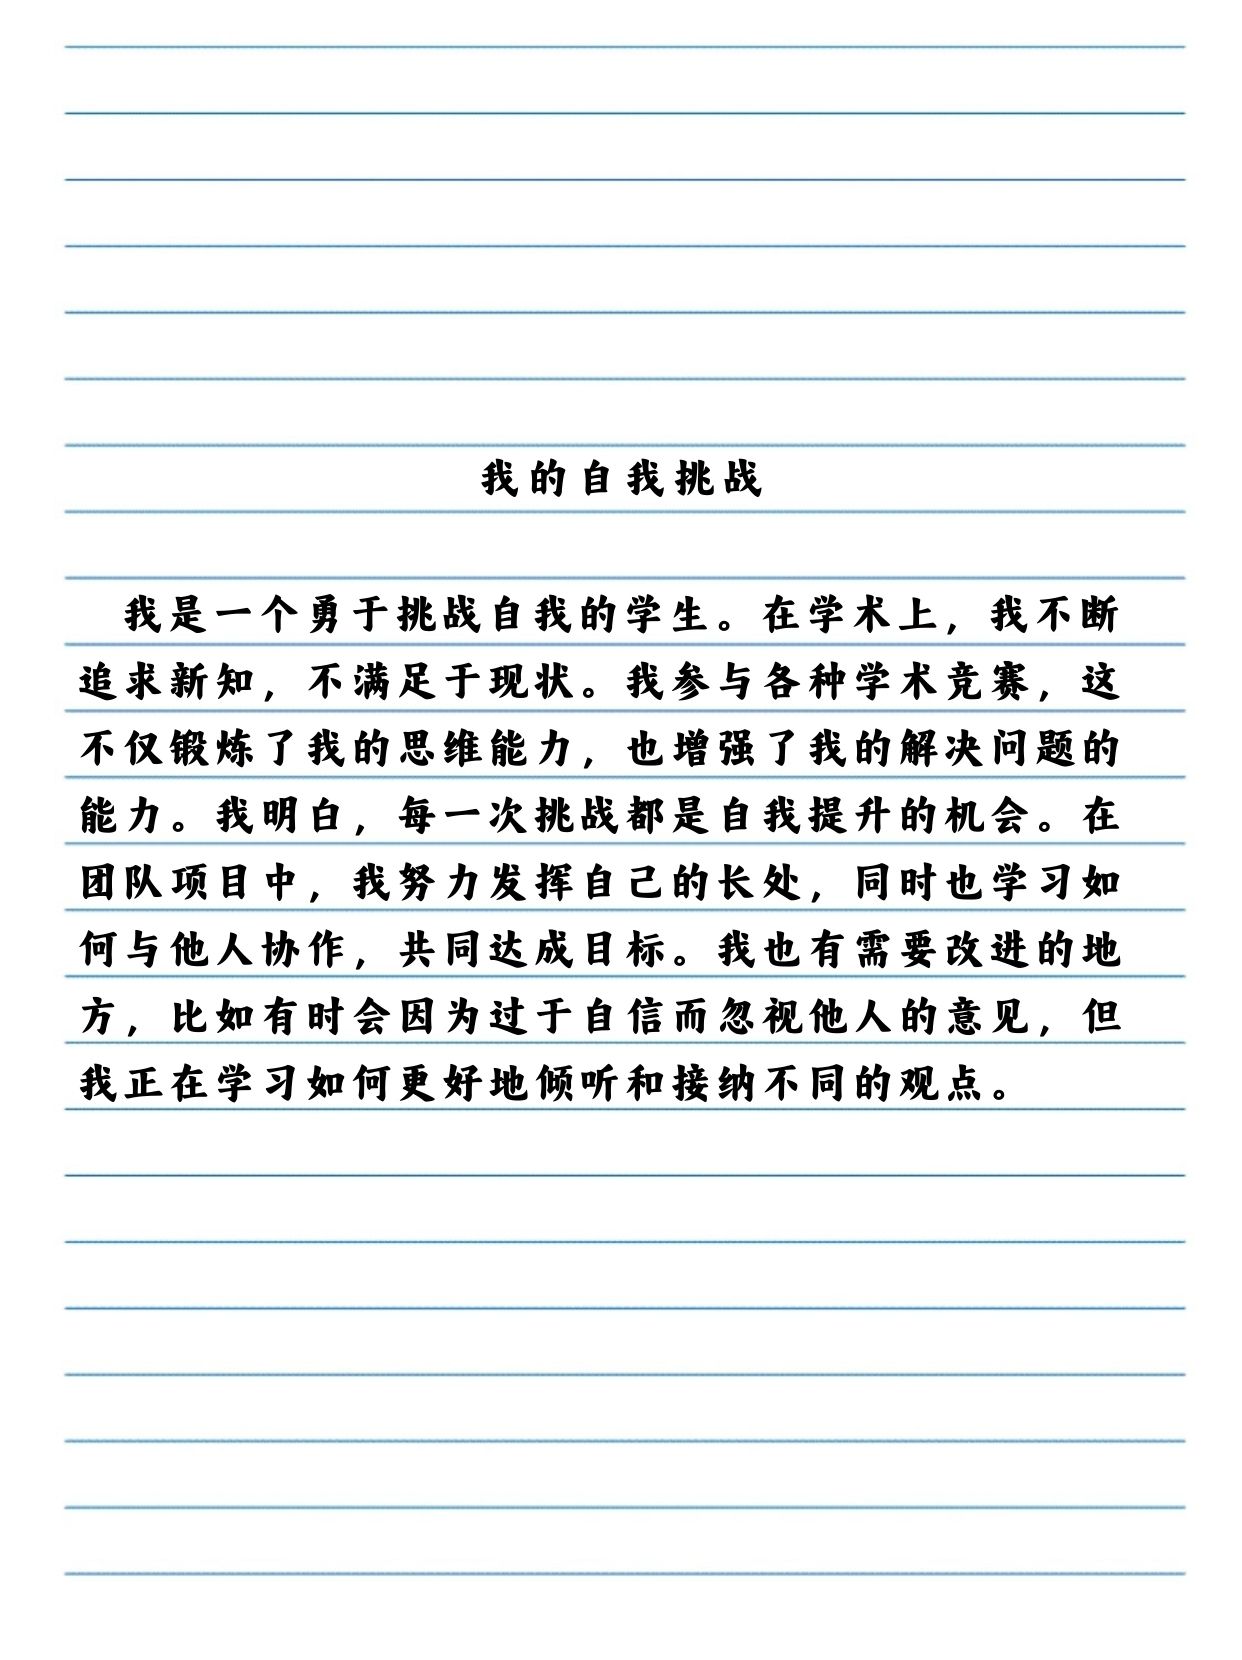 我的自我挑战
我是一个勇于挑战自我的学生。在学术上，我不断
追求新知，不满足于现状。我参与各种学术竞赛，这
不仅锻炼了我的思维能力，也增强了我的解决问题的
能力。我明白，每一次挑战都是自我提升的机会。在
团队项目中，我努力发挥自己的长处，同时也学习如
何与他人协作，共同达成目标。我也有需要改进的地
方，比如有时会因为过于自信而忽视他人的意见，但
我正在学习如何更好地倾听和接纳不同的观点。